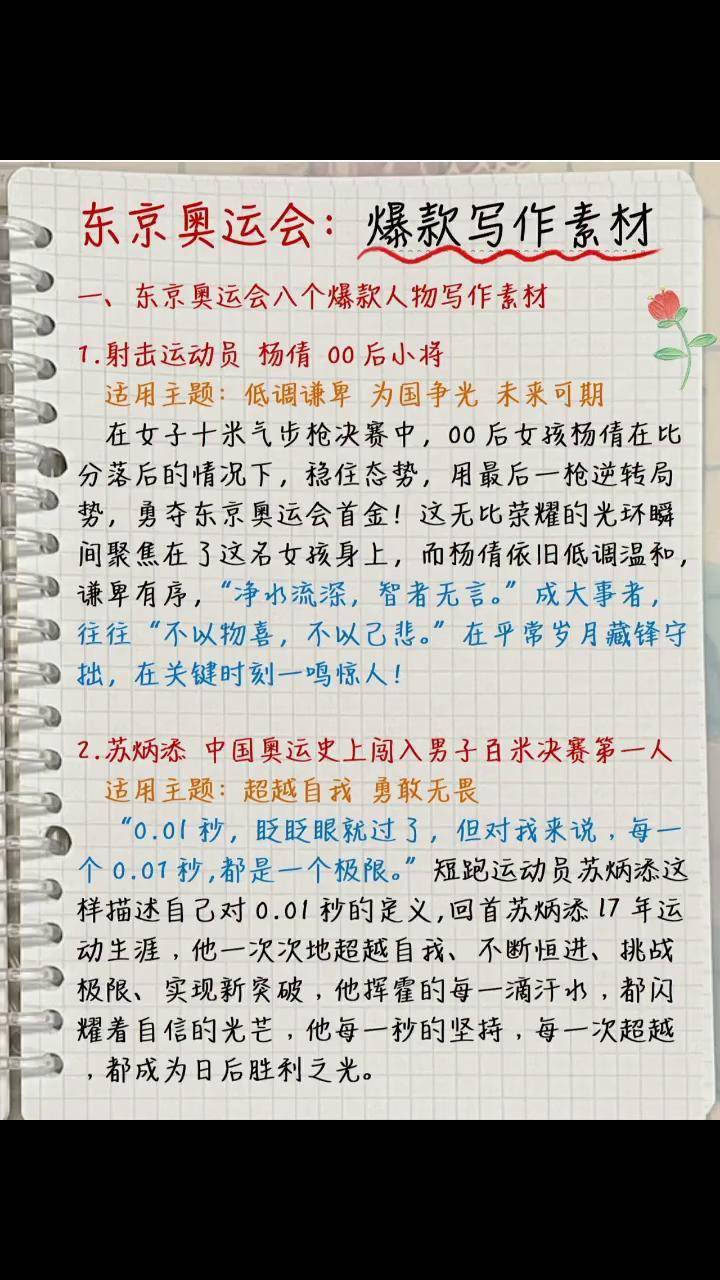 东京奥运会：爆款写作素材
一、东京奥运会八个爆款人物写作素材
1.射击运动员 杨倩 00后小将
适用主题：低调谦卑 为国争光 未来可期
在女子十米气步枪决赛中，00后女孩杨倩在比
分落后的情况下，稳住态势，用最后一枪逆转局
势，勇夺东京奥运会首金！这无比荣耀的光环瞬
间聚焦在了这名女孩身上，而杨倩依旧低调温和，
谦卑有序，“净水流深，智者无言。”成大事者，
往往“不以物喜，不以己悲。”在平常岁月藏锋守
拙，在关键时刻一鸣惊人！
2.苏炳添 中国奥运史上闯入男子百米决赛第一人
适用主题：超越自我 勇敢无畏
“0.01秒，眨眨眼就过了，但对我来说，每一
个0.01秒,都是一个极限。”短跑运动员苏炳添这
样描述自己对0.01秒的定义,回首苏炳添17年运
动生涯，他一次次地超越自我、不断恒进、挑战
极限、实现新突破，他挥霍的每一滴汗水，都闪
耀着自信的光芒，他每一秒的坚持，每一次超越
，都成为日后胜利之光。